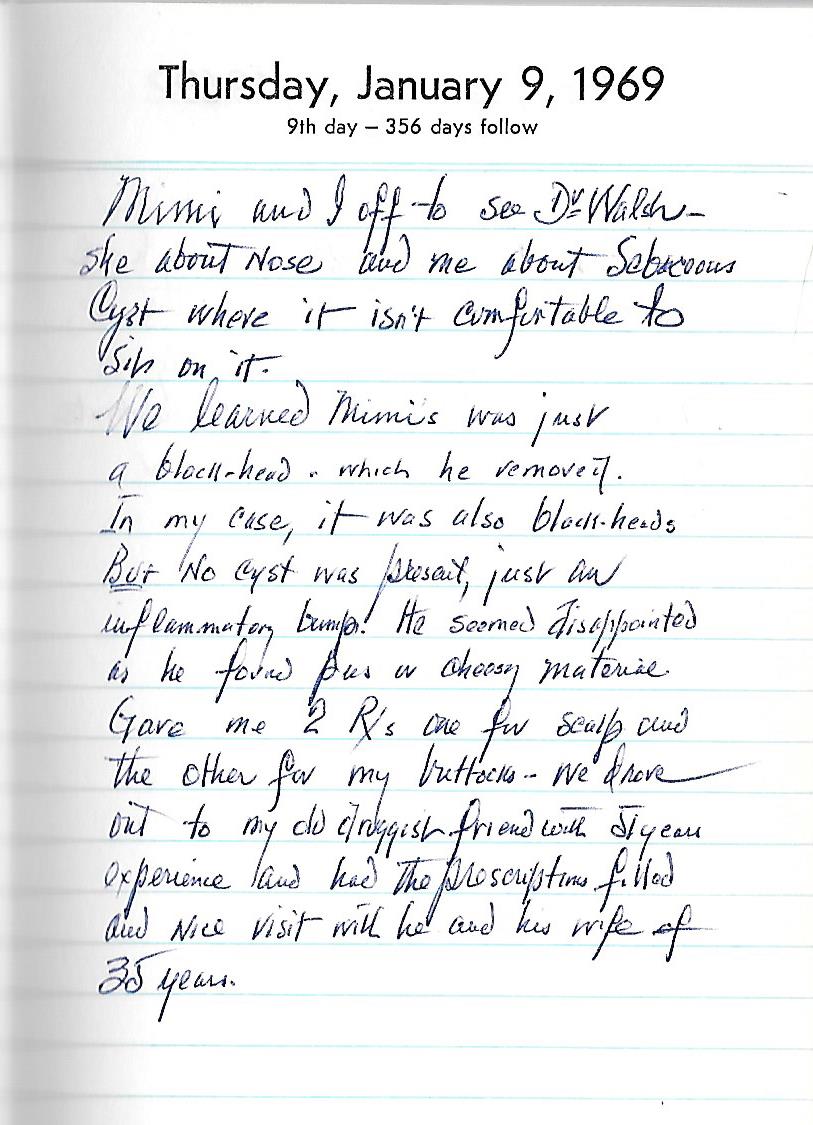 Thursday, January 9, 1969
9th day – 356 days follow
Mimi and I off to see Dr Walsh –
she about Nose and me about Sebaceous
Cyst where it isn't comfortable to
Sit on it.
We learned Mimi's was just
a black-head. which he removed.
In my case, it was also black-heads
But No cyst was present, just an
inflammatory bump. He seemed disappointed
as he found pus or cheesy material.
Gave me 2 R/s one for scalp and
the other for my buttocks – We drove
out to my old druggist friend with 51 years
experience and had the prescriptions filled
and Nice visit with he and his wife of
35 years.